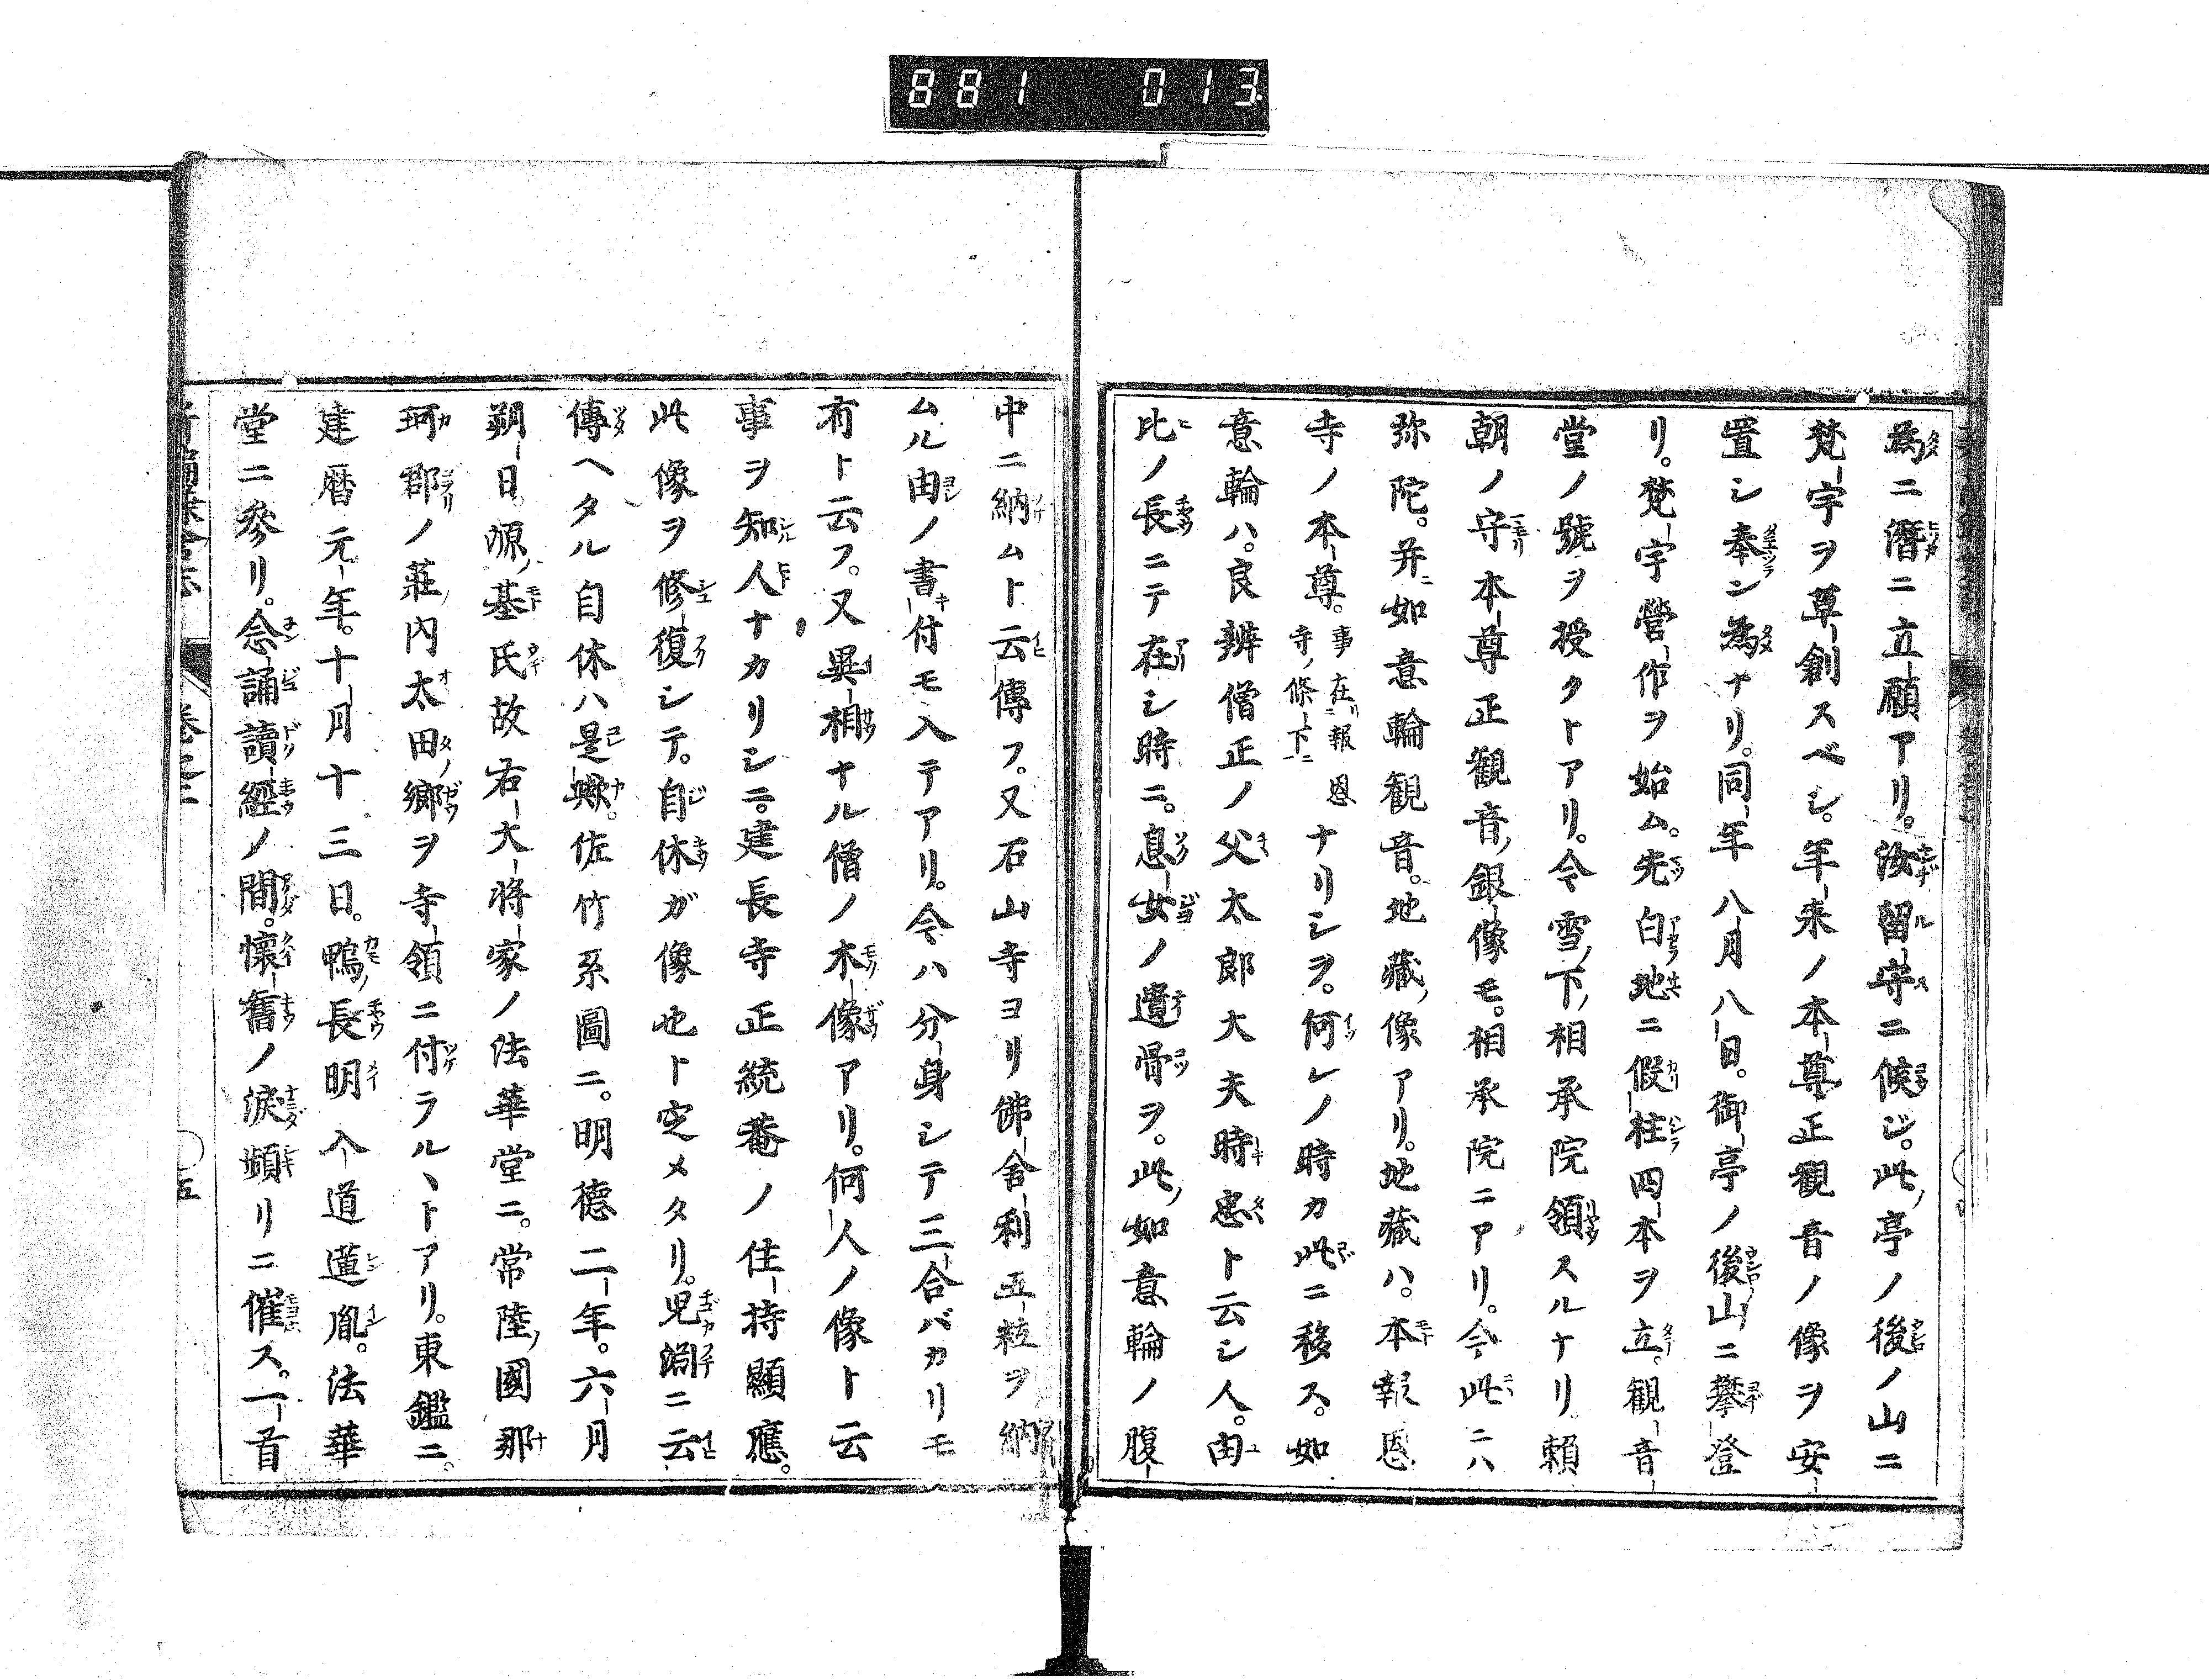 881 013
為ニ潛ニ立願アリ。汝留守ニ候ジ。此亭ノ後ノ山ニ
梵宇ヲ草創スベシ。年来ノ本尊正觀音ノ像ヲ安
置シ奉ン為ナリ。同年八月八日。御亭ノ後山ニ攀登
リ。梵宇營作ヲ始ム。先白地ニ假柱四本ヲ立。觀音
堂ノ號ヲ授クトアリ。今雪ノ下相承院領スルナリ。賴
朝ノ守本尊正觀音ノ銀像モ。相承院ニアリ。今此ニハ
弥陀。并ニ如意輪觀音。地藏ノ像アリ。地藏ハ。本報恩
寺ノ本尊。事在報恩寺ノ條下ニナリシヲ。何レノ時カ此ニ移ス。如
意輪ハ。良辨僧正ノ父太郎大夫時忠ト云シ人。由
比ノ長ニテ在シ時ニ。息女ノ遺骨ヲ。此如意輪ノ腹
中ニ納ムト云傳フ。又石山寺ヨリ佛舍利五粒ヲ納
ムル由ノ書付モ入テアリ。今ハ分身シテ三合バカリモ
有ト云フ。又異相ナル僧ノ木像アリ。何人ノ像ト云
事ヲ知人ナカリシニ。建長寺正統菴ノ住持顯應。
此像ヲ修復シテ。自休ガ像也ト定メタリ。児淵ニ云
傳ヘタル自休ハ是歟。佐竹系圖ニ。明德二年。六月
朔日。源ノ基氏故右大將家ノ法華堂ニ。常陸ノ國那
珂郡ノ莊内太田ノ郷ヲ寺領ニ付ラル丶トアリ。東鑑ニ。
建暦元年。十月十三日。鴨ノ長明入道蓮胤。法華
堂ニ參リ。念誦讀經ノ間。懷舊ノ淚頻リニ催ス。一首
卷之二
五